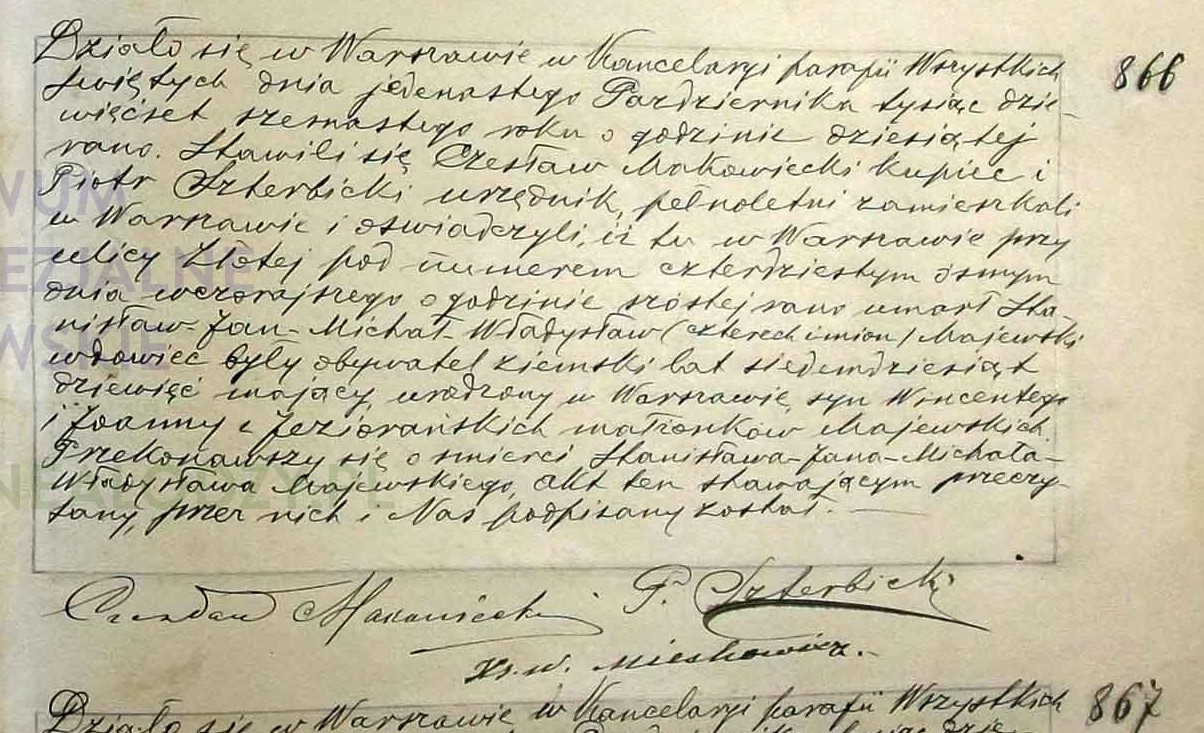 Działo się w Warszawie w Kancelaryi parafii Wszystkich 866
Świętych dnia jedenastego Października tysiąc dzie-
więćset szesnastego roku o godzinie dziesiątej
rano. Stawili się Czesław Makowiecki kupiec i
Piotr Szterbicki urzędnik, pełnoletni zamieszkali
w Warszawie i oświadczyli, iż tu w Warszawie przy
ulicy Złotej pod numerem czterdziestym ósmym
dnia wczorajszego o godzinie szóstej rano umarł Sta-
nisław-Jan-Michał-Władysław (czterech imion) Majewski
wdowiec były obywatel ziemski lat siedemdziesiąt
dziewięć mający, urodzony w Warszawie, syn Wincentego
i Joanny z Jeziorańskich małżonków Majewskich.
Przekonawszy się o śmierci Stanisława-Jana-Michała-
Władysława Majewskiego, akt ten stawającym przeczy-
tany, przez nich i Nas podpisany został.
Czesław Makowiecki P. Szterbicki
Ks. W.
Działo się w Warszawie w Kancelaryi parafii Wszystkich 867